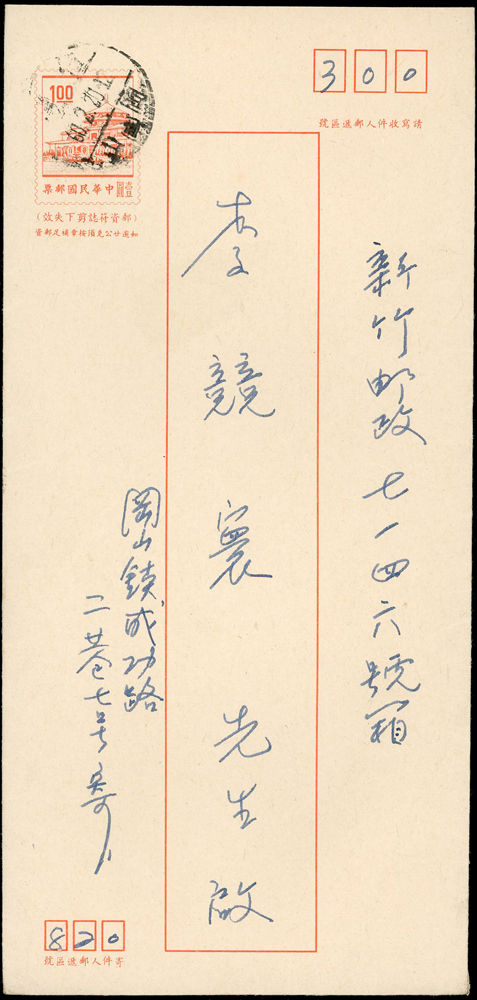 300
請寫收件人郵遞區號
新竹邮政七一四六號箱
李競寰先生啟
1.00
岡山
60.2.20.
中華民國郵票
壹圓
(郵資符誌剪下失效)
如逾廿公克須按章補足郵資
岡山鎮成功路
二巷七号寄
820
寄件人郵遞區號